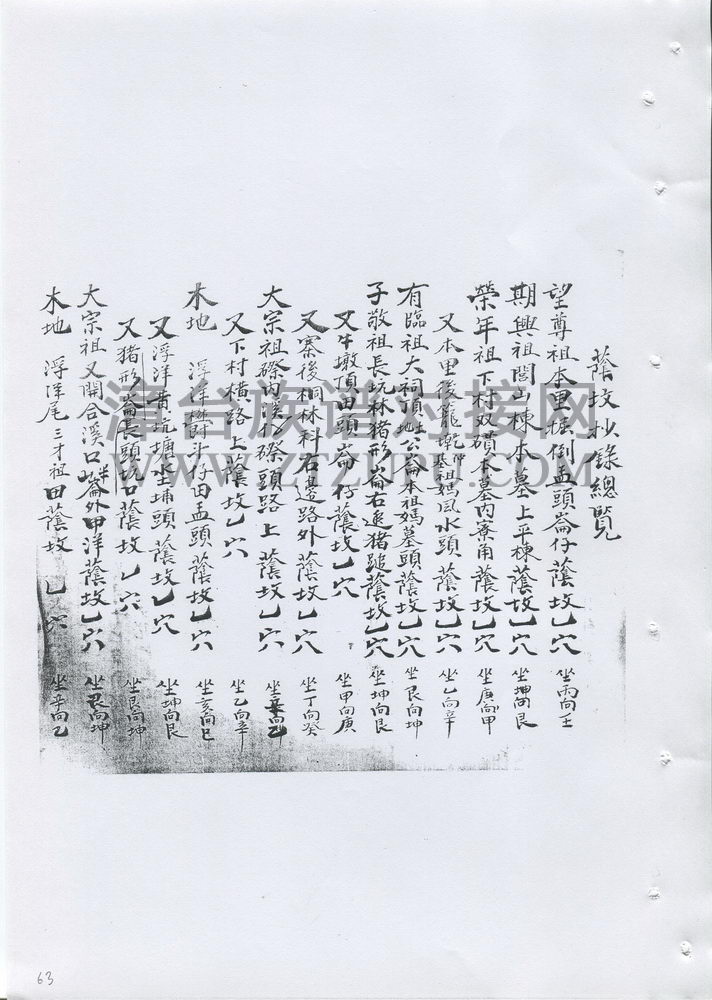 蔭坟抄錄總覽
望尊祖本里崛倒孟頭崙仔蔭坟乚穴 坐丙向壬
期興祖閭山棟本墓上平棟蔭坟乚穴 坐坤向艮
榮年祖下村双礩本墓內寮角蔭坟乚穴 坐庚向甲
又本里後龍乾祖媽風水頭蔭坟乚穴 坐乙向辛
有臨祖大祠頂土地公崙本祖媽墓頭蔭坟乚穴 坐艮向坤
子敬祖長坑林猪形崙右邊猪蹄蔭坟乚穴 坐坤向艮
又牛墩頂田頭崙仔蔭坟乚穴 坐甲向庚
又寨後桐林科右邊路外蔭坟乚穴 坐丁向癸
大宗祖磜內溪仁磜頭路上蔭坟乚穴 坐向
又下村橫路上蔭坟乚穴 坐乙向辛
木地 浮洋樹斗仔田孟頭蔭坟乚穴 坐亥向巳
又浮洋黃坑塘尘埔頭蔭坟乚穴 坐坤向艮
又猪形崙長頭坑口蔭坟乚穴 坐艮向坤
大宗祖又開合溪口半崙外甲洋蔭坟乚穴 坐艮向坤
木地 浮洋尾三才祖田蔭坟乚穴 坐辛向乙
漳台族谱对接网
WWW.ZTZUPU.COM
63